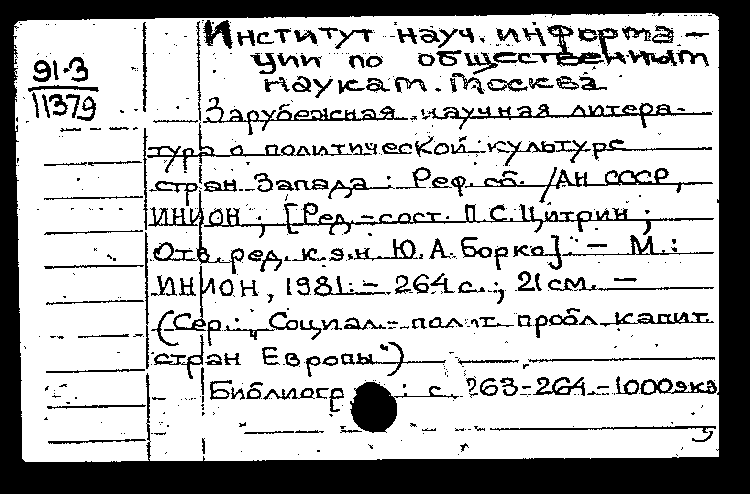 Институт науч. информа-
ции по общественным
наукам. Москва
91-3
11379
Зарубежная научная литера-
тура о политической культуре
стран Запада: Реф. сб. /АН СССР,
ИНИОН; [Ред.-сост. П.С. Цитрин;
Отв. ред. к.э.н. Ю.А. Борко]. — М.:
ИНИОН, 1981. - 264 с.; 21 см. —
(Сер.: "Социал.-полит. пробл. капит.
стран Европы")
Библиогр : с. 263-264. - 1000 экз